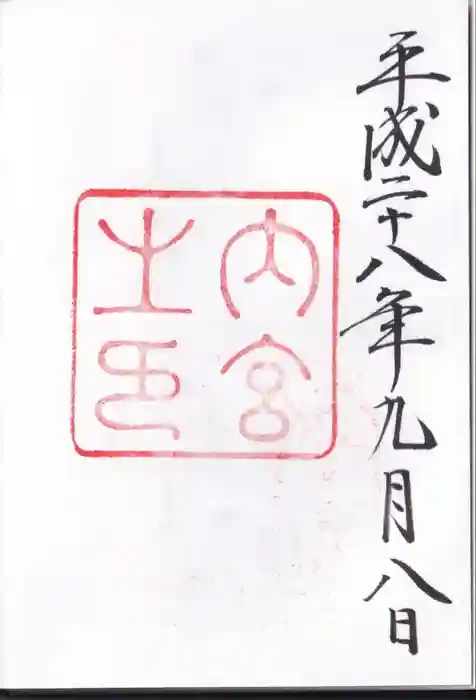 平成二十八年九月八日
内宮
之印